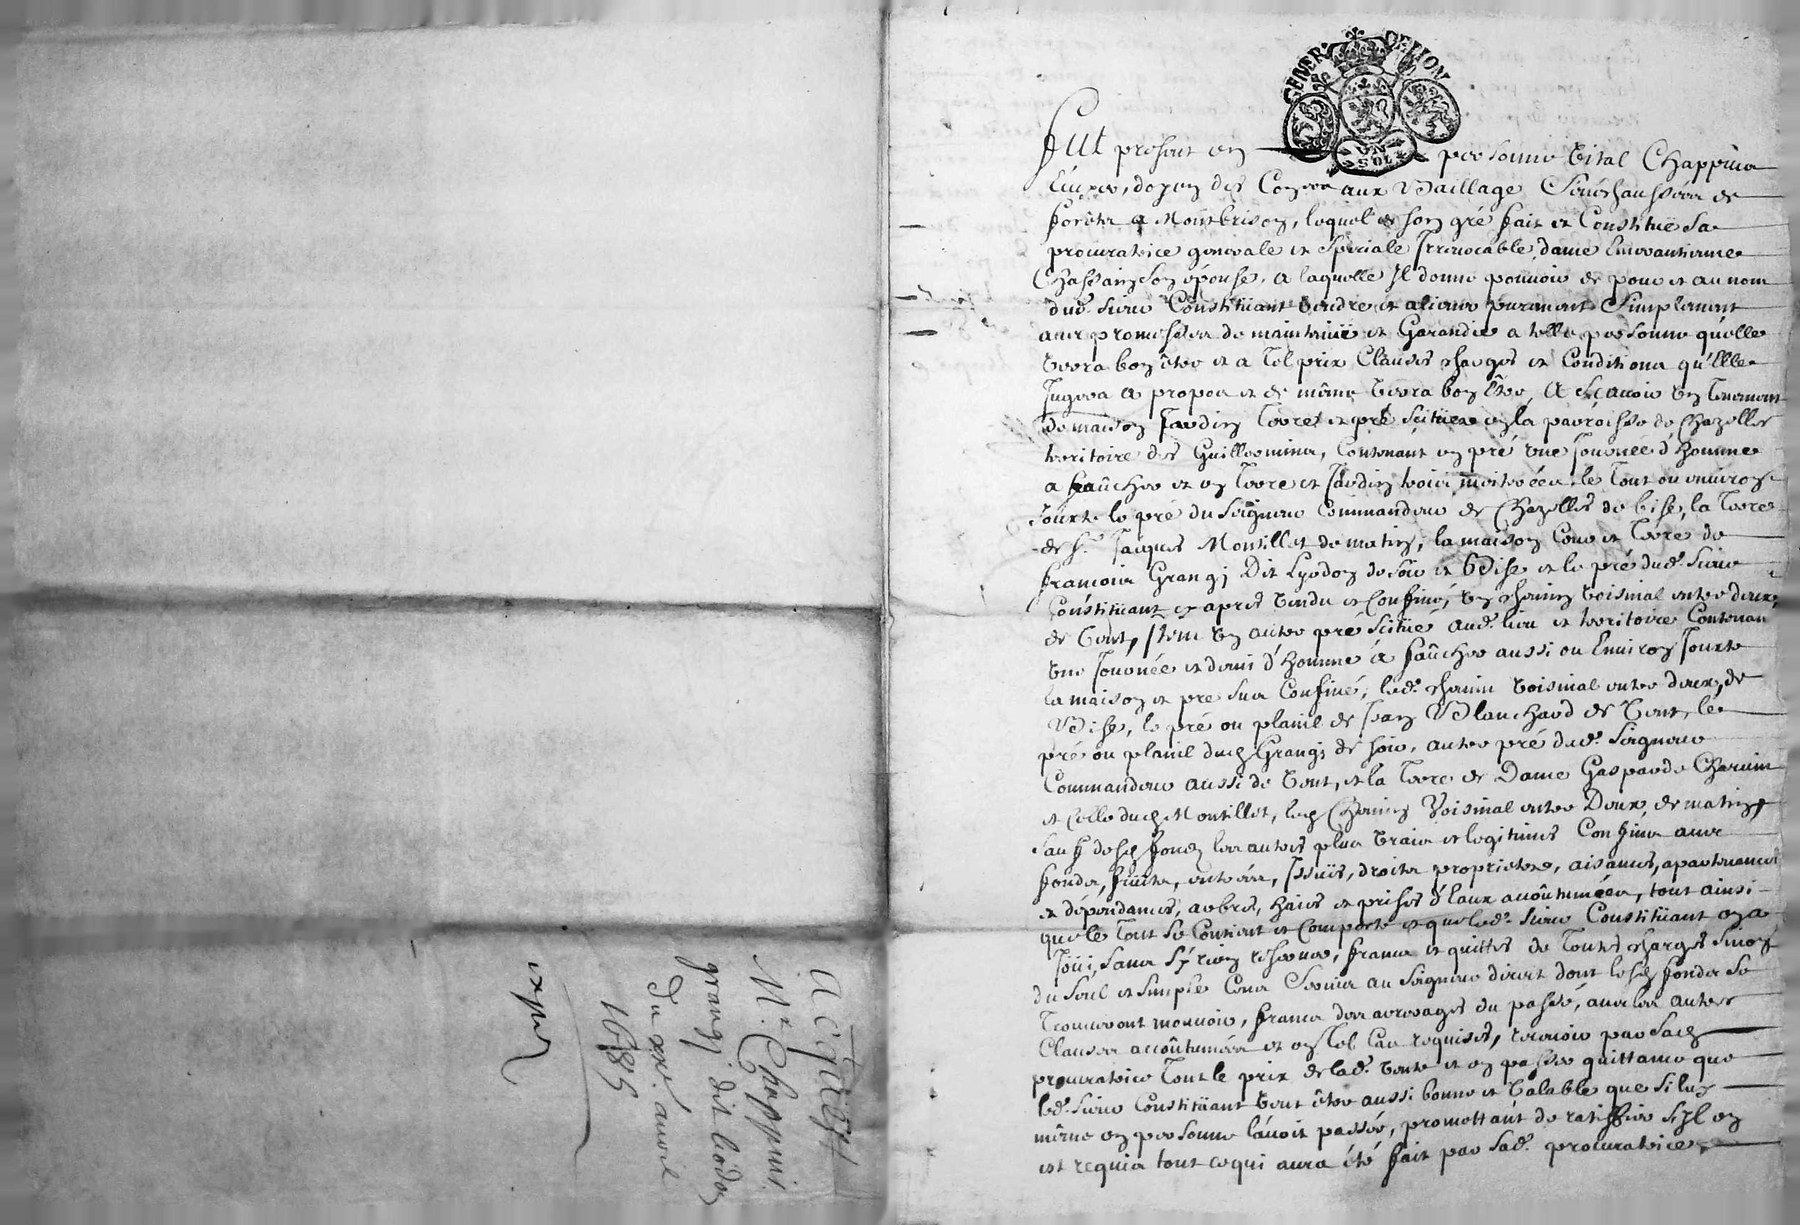 GENER DE LYON
UN
SOL
Fut present en personne Vital Chappuis
aux Baillage Senechaussée de
forêts a Montbrison, lequel de son gré fait et Constitue sa
procuratrice generale et speciale Irrevocable, dame
Chassain son épouse, a laquelle Il donne pouvoir de pour et au nom
dud. sieur Constituant vendre et aliener purement Simplement
avec promesses de maintenir et Garandir a telle personne quelle
verra bon être et a tel prix Clauses charges et Conditions qu'Elle
Jugera a propos et de même verra bon être, A sçavoir un tenement
de maison Jardin terre et pré scitués en la parroisse de Chazelles
territoire des Guilleomins, Contenant en pré une Journée d'homme
a faûcher et en terre et Jardin trois meiterées, le tout ou environ
Jouxte le pré du Seigneur Commandeur de Chazelles de bise, la terre
de Sr. Jacques Montillet de matin, la maison Cour et terre de
francois Grangj Dit Lyodon de soir et Bise et le pré dud. sieur
Constituant cy apres vendu et Confiné, un chemin voisinal entre deux,
de vent, Item un autre pré scitué aud. lieu et territoire Contenant
une Journée et demi d'homme à faûcher aussi ou Environ Jouxte
la maison et pré sus Confiné, led. chemin voisinal entre deux, de
Bise, le pré ou planil de Jean Blanchard de vent, le
pré ou planil dud. Grangj de soir, autre pré dud. Seigneur
Commandeur aussi de vent, et la terre de Dame Gasparde
et celle dud. Montillet, led. Chemin Voisinal entre Deux de matin,
sauf desd. fonds les autres plus vrais et legitimes Confins avec
fonds, fruits, entrées, Issuës, droits proprietés, aisances, apartenances
et dépendances, arbres, haies et prises d'eaux accoûtumées, tout ainsi
que le tout se Contient et Comporte et que led. sieur Constituant en a
Joüi, sans s'y rien reserver, francs et quittes de toutes charges sinon
du seul et simple Cens Servis au Seigneur direct dont lesd. fonds se
trouveront mouvoir, francs des arrerages du passé, avec les autres
Clauses accoûtumées et en tel Cas requises, recevoir par sad.
procuratrice tout le prix de lad. vente et en passer quittance que
led. sieur Constituant veut être aussi bonne et valable que si luy
même en personne l'avoit passée, promettant de ratiffier s'Il en
est requis tout ce qui aura été fait par sad. procuratrice
Mr. Chappuis
grangj dit liodon
du xxe. avril
1685